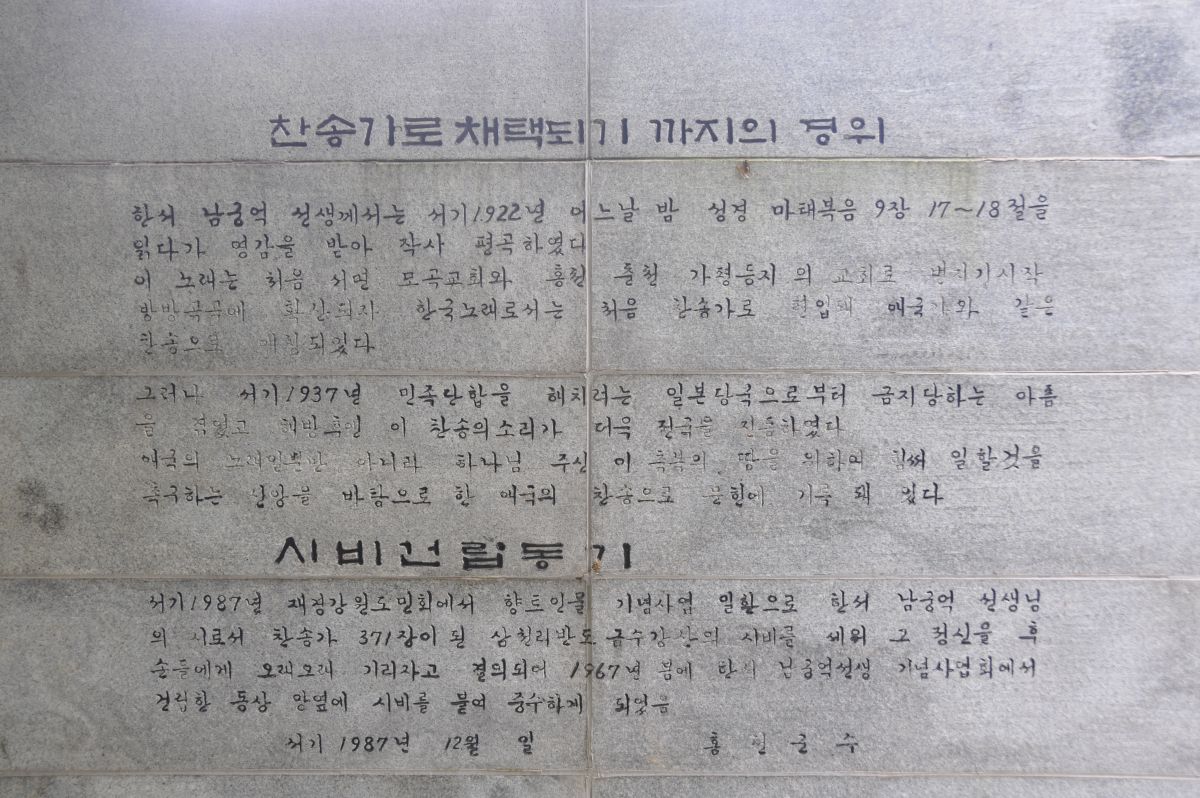 찬송가로 채택되기 까지의 경위
한서 남궁억 선생께서는 서기1922년 어느날 밤 성경 마태복음 9장 17~18절을
읽다가 영감을 받아 작사 편곡하였다
이 노래는 처음 서면 모곡교회와 홍천 춘천 가평등지의 교회로 번지기시작
방방곡곡에 확산되자 한국노래로서는 처음 찬송가로 편입돼 애국가와 같은
찬송으로 애창되었다
그러나 서기1937년 민족단합을 해치려는 일본당국으로부터 금지당하는 아픔
을 겪었고 해방후엔 이 찬송의소리가 더욱 전국을 진동하였다
애국의 노래일뿐만 아니라 하나님 주신 이 축복의 땅을 위하여 힘써 일할것을
촉구하는 신앙을 바탕으로 한 애국의 찬송으로 문헌에 기록 돼 있다
시비건립동기
서기1987년 재경강원도민회에서 향토인물 기념사업 일환으로 한서 남궁억 선생님
의 시로서 찬송가 371장이 된 삼천리반도 금수강산의 시비를 세워 그 정신을 후
손들에게 오래오래 기리자고 결의되어 1967년 봄에 한서 남궁억선생 기념사업회에서
건립한 동상 양옆에 시비를 붙여 중수하게 되었음
서기 1987년 12월 일 홍천군수